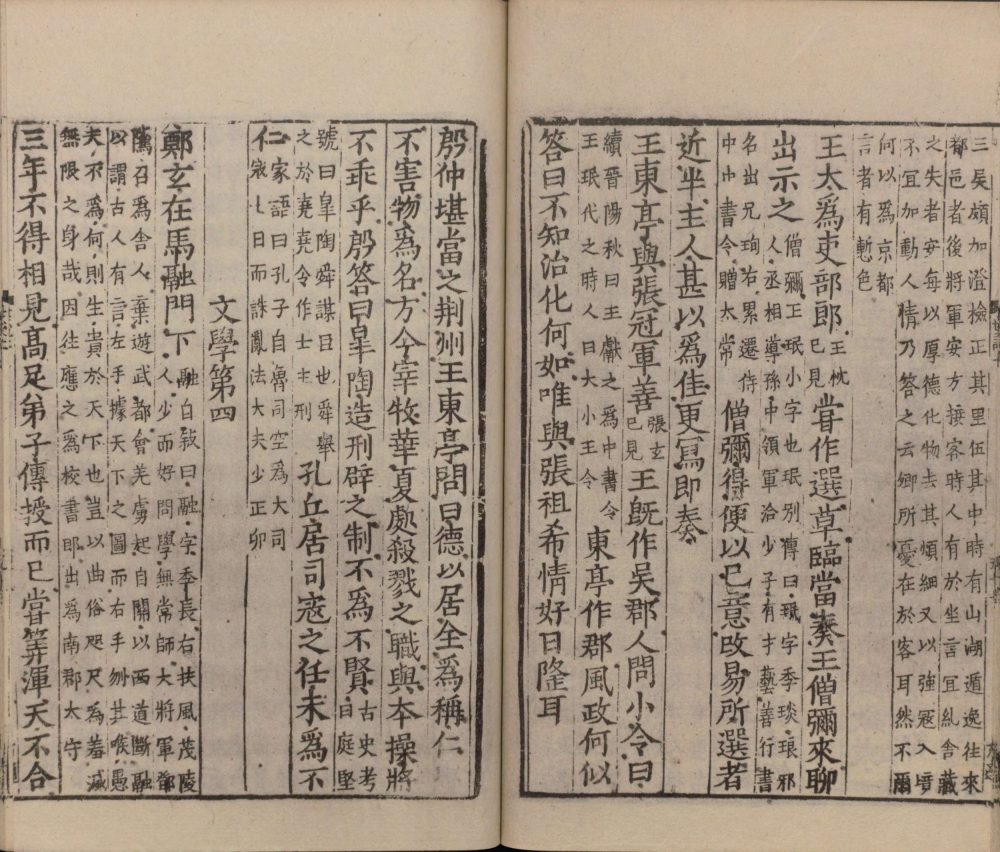 三吳頗加澄檢正其里伍其中時有山湖遁逸往來
都邑者後將軍安方接客時人有於坐言宜糺舍藏
之失者安每以厚德化物去其煩細又以強寇入境
不宜加動人情乃答之云卿所憂在於客耳然不爾
何以爲京都
言者有慙色
王太爲吏部郎王忱已見甞作選草臨當奏王僧彌來聊
出示之僧彌王珉小字也珉別傳曰珉字季琰琅邪人丞相導孫中領軍洽少子有才藝善行書
名出兄珣右累遷侍中中書令贈太常僧彌得便以已意改易所選者
近半主人甚以爲佳更寫即奏
王東亭與張冠軍善張玄已見王旣作吳郡人問小令曰
續晉陽秋曰王獻之爲中書令王珉代之時人曰大小王令東亭作郡風政何似
答曰不知治化何如唯與張祖希情好日隆耳
殷仲堪當之荆州王東亭問曰德以居全爲稱仁以
不害物爲名方今宰牧華夏處殺戮之職與本操將
不乖乎殷答曰皐陶造刑辟之制不爲不賢古史考曰庭堅
號曰皐陶舜謀臣也舜舉之於堯堯令作士主刑孔丘居司寇之任未爲不
仁家語曰孔子自魯司空爲大司寇七日而誅亂法大夫少正卯
文學第四
鄭玄在馬融門下融自敘曰融字季長右扶風茂陵人少而好問學無常師大將軍鄧
隲召爲舍人棄遊武都會羌虜起自關以西道斷融
以謂古人有言左手據天下之圖而右手刎其喉愚
夫不爲何則生貴於天下也豈以曲俗咫尺爲羞滅
無限之身哉因往應之爲校書郎出爲南郡太守
三年不得相見高足弟子傳授而已甞筭渾天不合